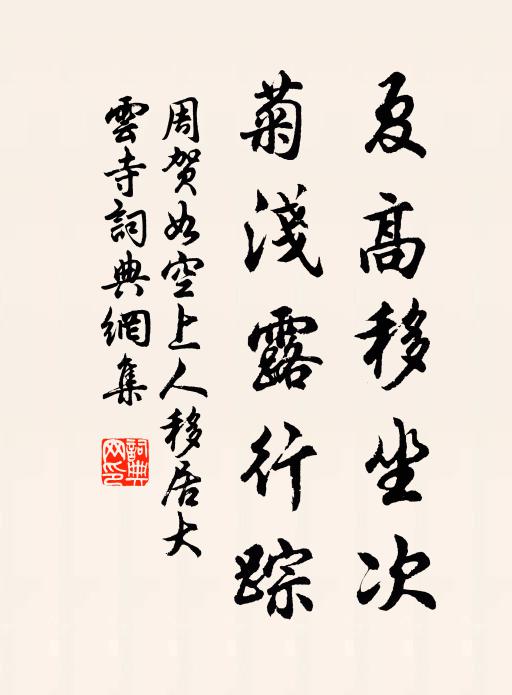 夏高移坐次
菊淺露行踪
周贺如空上人移居大
雲寺詞典網集
詞典
网印